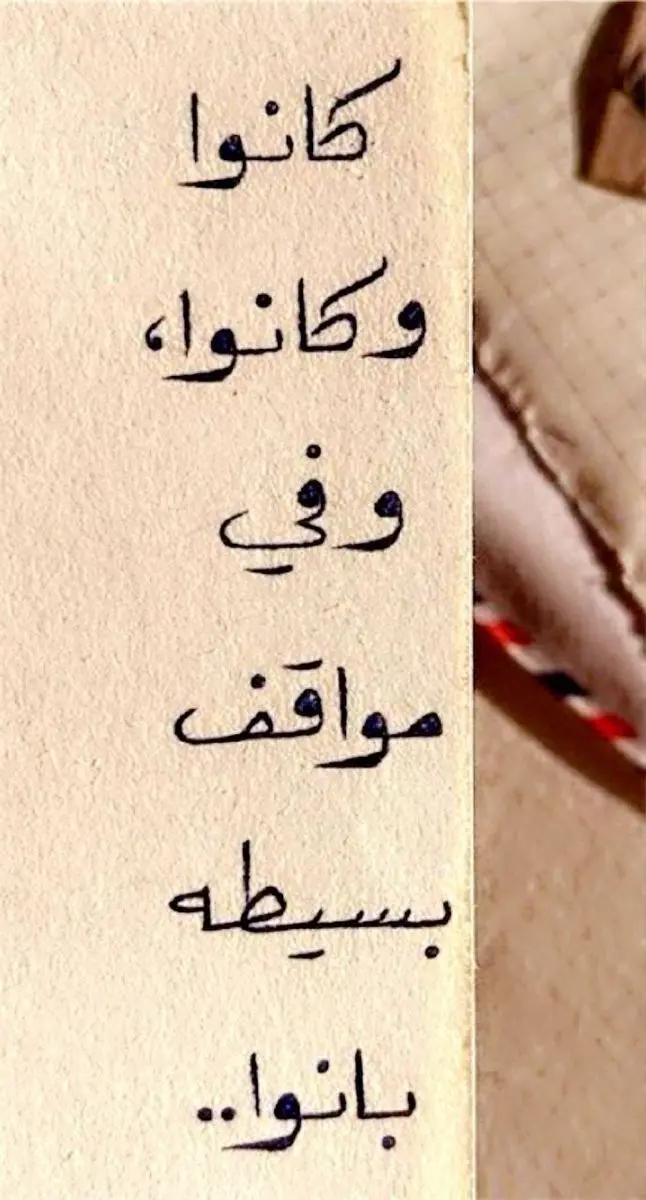 كانوا
وكانوا،
وفي
مواقف
بسيطه
بانوا..